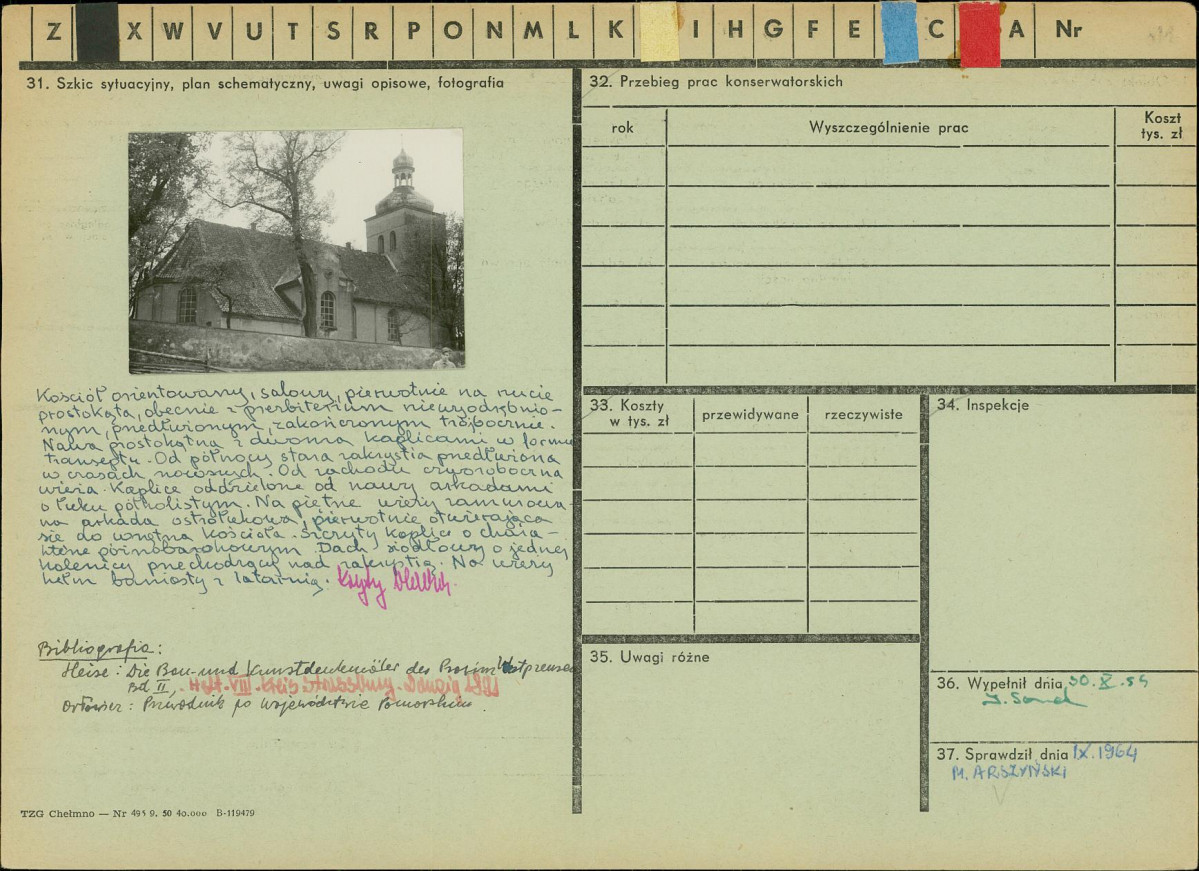 Z X W V U T S R P O N M L K I H G F E C A Nr
31. Szkic sytuacyjny, plan schematyczny, uwagi opisowe, fotografia
Kościół orientowany, salowy, pierwotnie na rzucie
prostokąta, obecnie z prezbiterium niewyodrębnio-
nym, przedłużonym, zakończonym trójbocznie.
Nawa prostokątna z dwoma kaplicami w formie
transeptu. Od północy stara zakrystia przedłużona
w czasach nowszych. Od zachodu czworoboczna
wieża. Kaplice oddzielone od nawy arkadami
o łuku półkolistym. Na piętrze wieży zamurowa-
na arkada ostrołukowa, pierwotnie otwierająca
się do wnętrza kościoła. Szczyty kaplic o chara-
kterze późnobarokowym. Dach siodłowy o jednej
kalenicy przechodzący nad zakrystią. Na wieży
hełm baniasty z latarnią.
Bibliografia:
Heise: Die Bau- und Kunstdenkmäler der Provinz Westpreussen
Bd II, Heft. VIII. Kreis Strassburg. Danzig 1891
Orłowicz: Przewodnik po Województwie Pomorskim.
TZG Chełmno — Nr 495 9. 50 40.000 B-119479
32. Przebieg prac konserwatorskich
rok Wyszczególnienie prac Koszt
tys. zł
33. Koszty
w tys. zł przewidywane rzeczywiste
34. Inspekcje
35. Uwagi różne
36. Wypełnił dnia 30. X. 59
37. Sprawdził dnia IX. 1964
M. ARSZYŃSKI